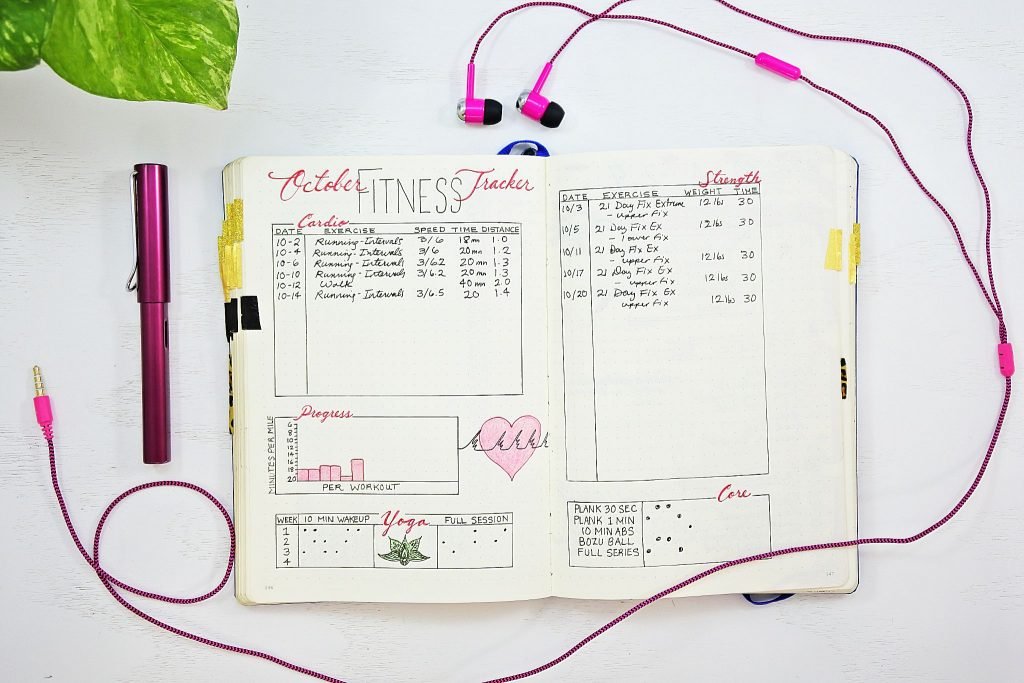 October FITNESS Tracker
Cardio
DATE EXERCISE SPEED TIME DISTANCE
10-2 Running-Intervals 3/6 18mn 1.0
10-4 Running-Intervals 3/6 20mn 1.2
10-6 Running-Intervals 3/6.2 20mn 1.3
10-10 Running-Intervals 3/6.2 20mn 1.3
10-12 Walk 40mn 2.0
10-14 Running-Intervals 3/6.5 20 1.4
Progress
MINUTES PER MILE
6
8
10
12
14
16
18
20
PER WORKOUT
Yoga
WEEK 10 MIN WAKEUP FULL SESSION
1
2
3
4
Strength
DATE EXERCISE WEIGHT TIME
10/3 21 Day Fix Extreme 12 lbs 30
- upper Fix
10/5 21 Day Fix Ex 12 lbs 30
- lower Fix
10/11 21 Day Fix Ex
- upper Fix 12 lbs 30
10/17 21 Day Fix Ex
- upper Fix 12 lbs 30
10/20 21 Day Fix Ex
- upper Fix 12 lbs 30
Core
PLANK 30 SEC
PLANK 1 MIN
10 MIN ABS
BOZU BALL
FULL SERIES